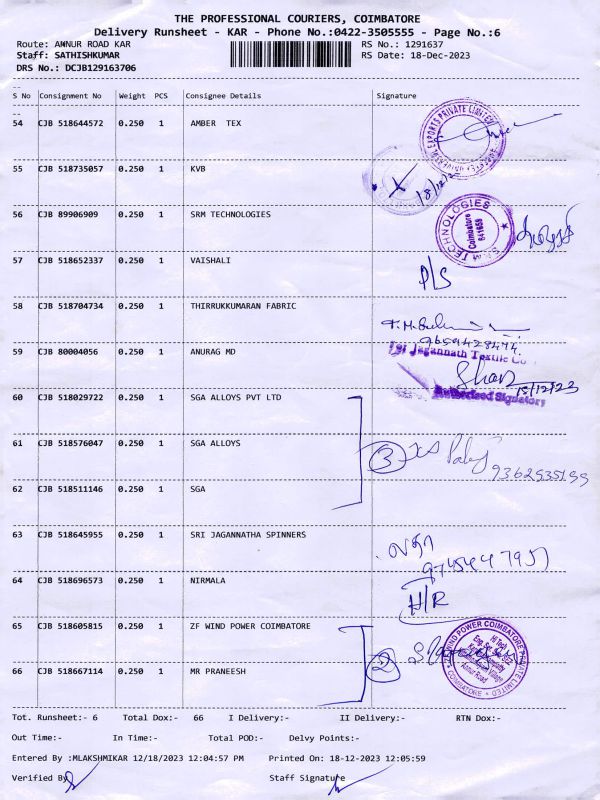 THE PROFESSIONAL COURIERS, COIMBATORE
Delivery Runsheet - KAR - Phone No.:0422-3505555 - Page No.:6
Route: ANNUR ROAD KAR RS No.: 1291637
Staff: SATHISHKUMAR RS Date: 18-Dec-2023
DRS No.: DCJB129163706
S No Consignment No Weight PCS Consignee Details Signature
54 CJB 518644572 0.250 1 AMBER TEX
EXPORTS PRIVATE LIMITED
55 CJB 518735057 0.250 1 KVB
X 18/12/2
56 CJB 89906909 0.250 1 SRM TECHNOLOGIES
SRM TECHNOLOGIES Coimbatore 641659
57 CJB 518652337 0.250 1 VAISHALI
P/S
58 CJB 518704734 0.250 1 THIRRUKKUMARAN FABRIC
9659428474
59 CJB 80004056 0.250 1 ANURAG MD
For Jagannath Textile Co
15/12/23
Authorised Signatory
60 CJB 518029722 0.250 1 SGA ALLOYS PVT LTD
61 CJB 518576047 0.250 1 SGA ALLOYS
3
62 CJB 518511146 0.250 1 SGA
63 CJB 518645955 0.250 1 SRI JAGANNATHA SPINNERS
64 CJB 518696573 0.250 1 NIRMALA
H/R
65 CJB 518605815 0.250 1 ZF WIND POWER COIMBATORE
2
ZF WIND POWER COIMBATORE PRIVATE LIMITED
Hi Tech
Annur Road
COIMBATORE
66 CJB 518667114 0.250 1 MR PRANEESH
Tot. Runsheet:- 6 Total Dox:- 66 I Delivery:- II Delivery:- RTN Dox:-
Out Time:- In Time:- Total POD:- Delvy Points:-
Entered By :MLAKSHMIKAR 12/18/2023 12:04:57 PM Printed On: 18-12-2023 12:05:59
Verified By Staff Signature